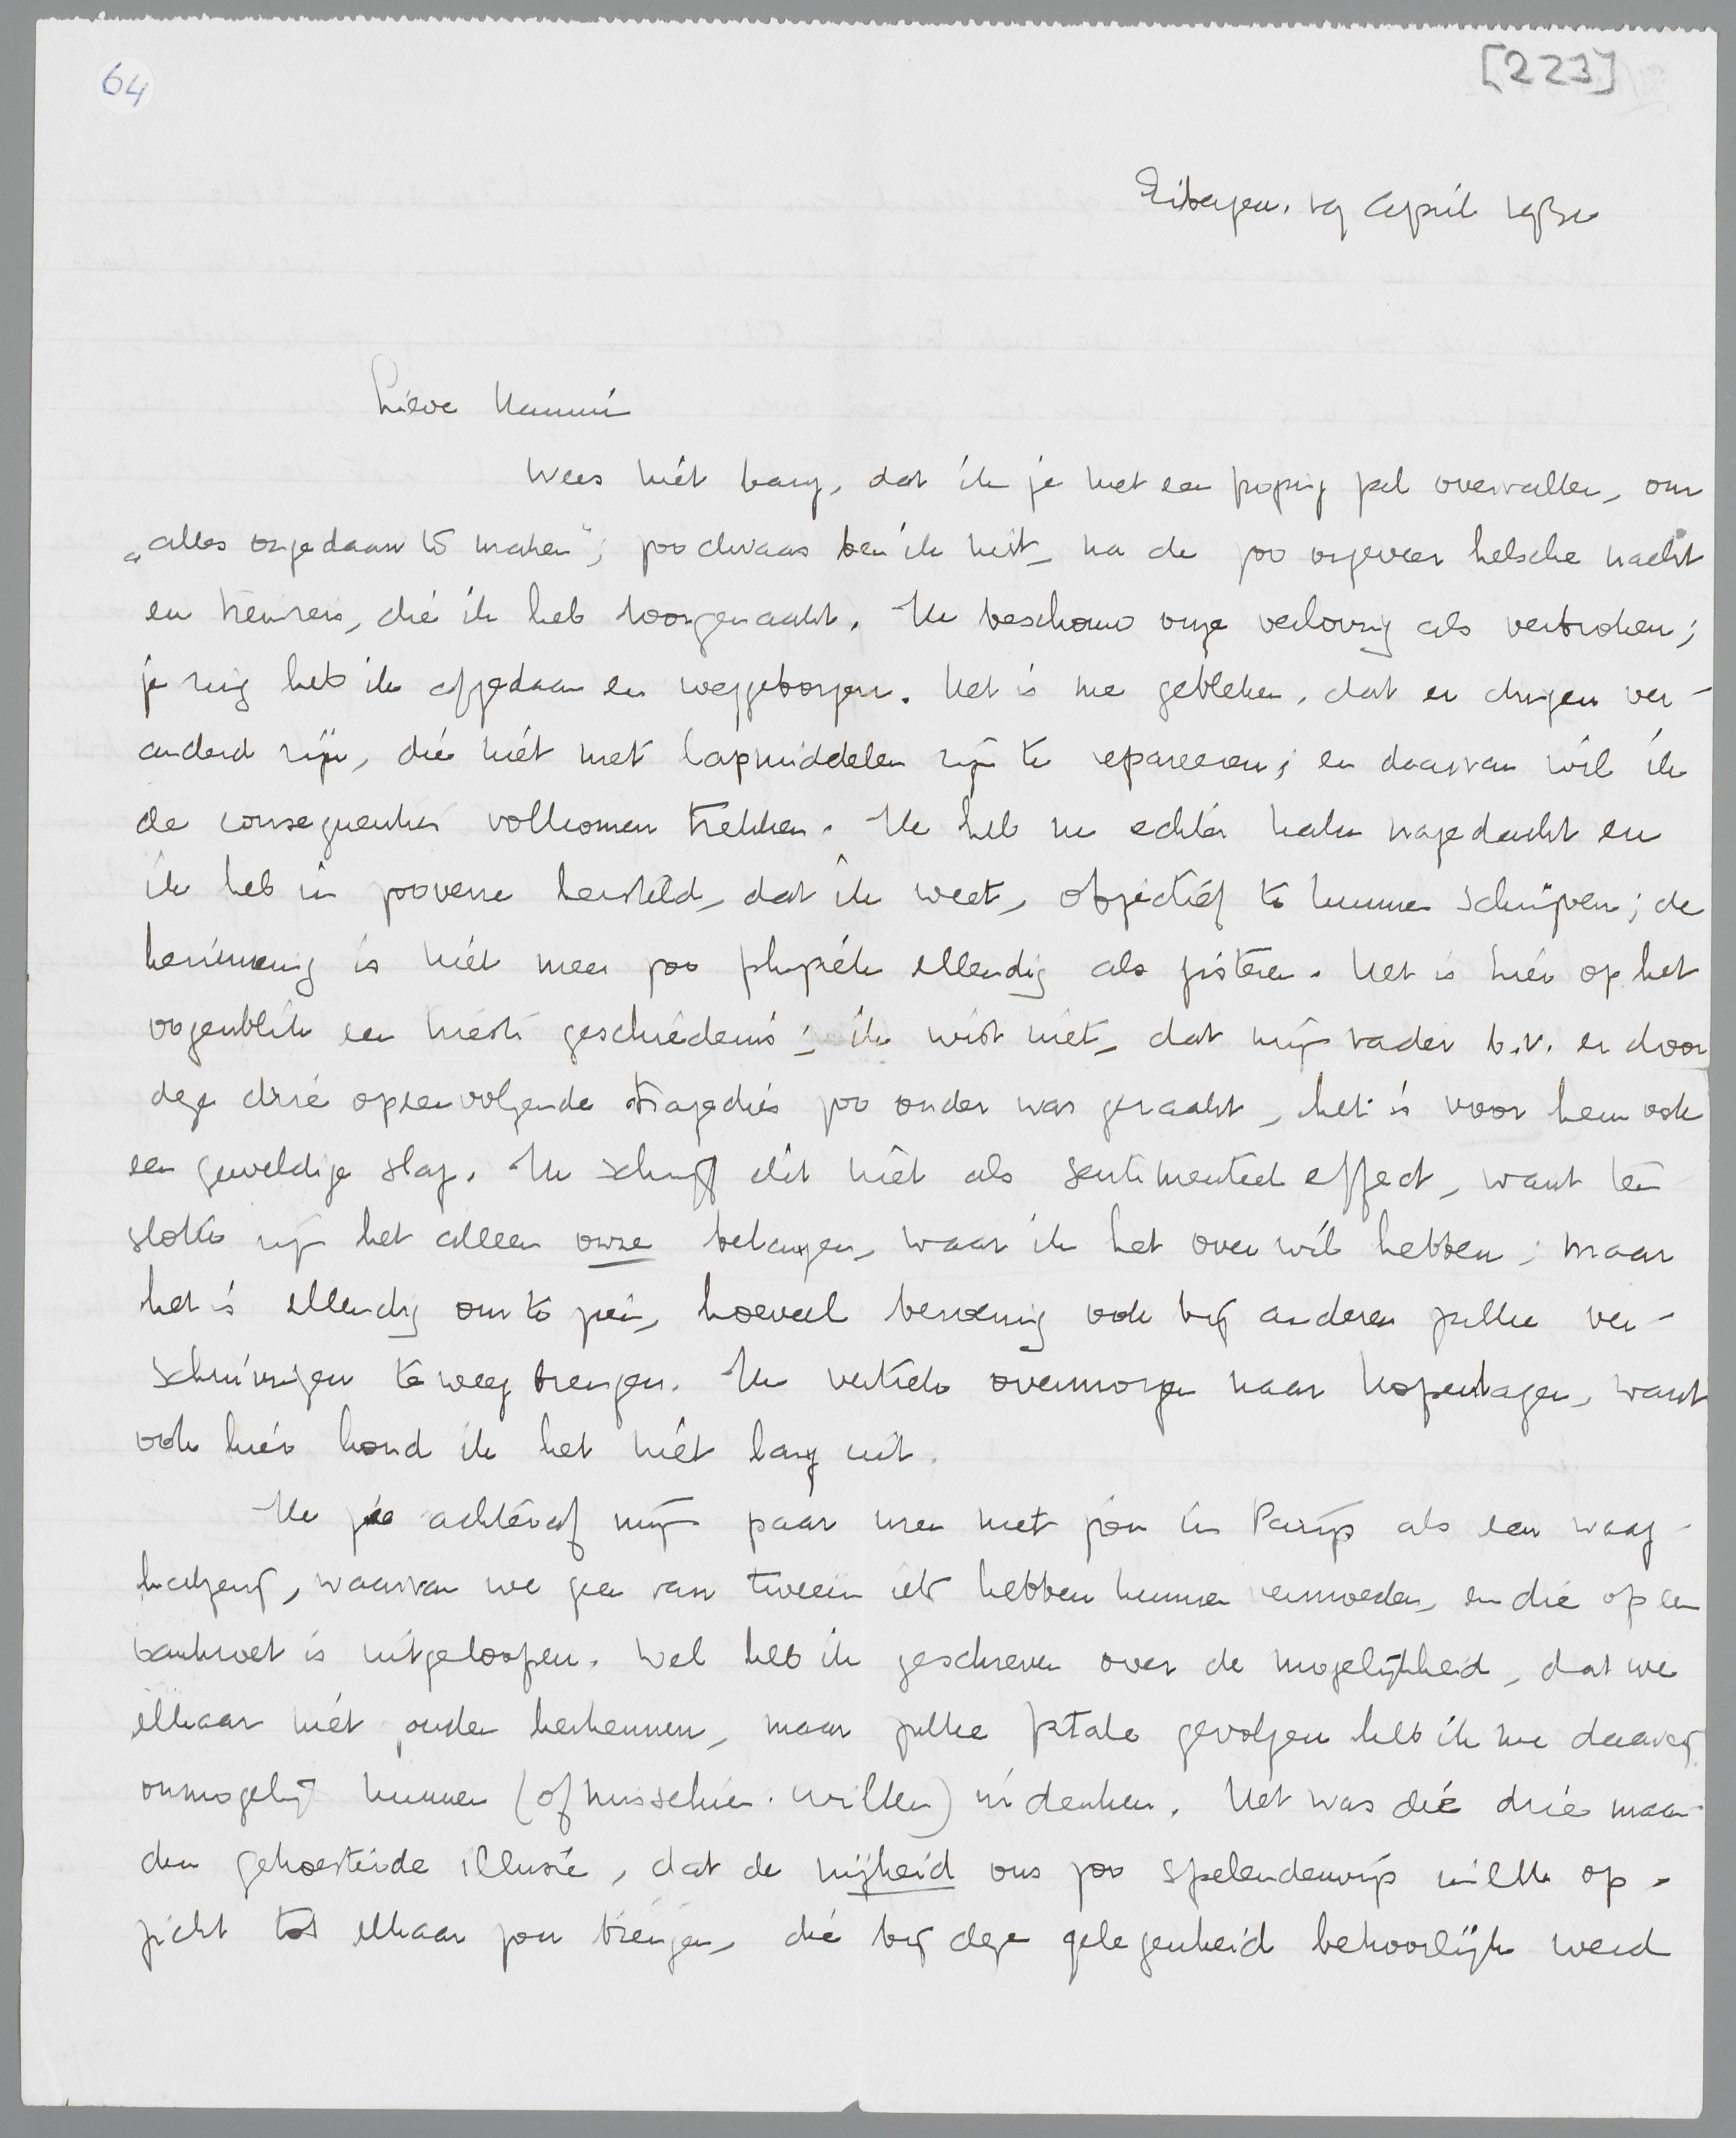 64
[223]
Eibergen, 19 April 1930
Lieve Mammi
Wees niet bang, dat ik je met een poging zal overvallen, om
„alles ongedaan te maken"; zoo dwaas ben ik niet, na de zoo ongeveer helsche nacht
en treinreis, die ik heb doorgemaakt. Ik beschouw onze verloving als verbroken;
je ring heb ik afgedaan en weggeborgen. Het is me gebleken, dat er dingen ver-
anderd zijn, die niet met lapmiddelen zijn te repareeren; en daarvan wil ik
de consequenties volkomen trekken. Ik heb nu echter nagedacht en
ik heb in zooverre hersteld, dat ik weet, objectief te kunnen schrijven; de
herinnering is niet meer zoo physiek ellendig als gisteren. Het is hier op het
oogenblik een trieste geschiedenis; ik wist niet, dat mijn vader b.v. er door
deze drie opeenvolgende tragedies zoo onder was geraakt, het is voor hem ook
een geweldige slag. Ik schrijf dit niet als sentimenteel effect, want ten
slotte zijn het alleen onze belangen, waar ik het over wil hebben; maar
het is ellendig om te zien, hoeveel beroering ook bij anderen zulke ver-
schuivingen teweeg brengen. Ik vertrek overmorgen naar Kopenhagen, want
ook hier houd ik het niet lang uit.
Ik zie achteraf mijn paar uren met jou in Parijs als een waag-
halzerij, waarvan we geen van tweeën iets hebben kunnen vermoeden, en die op een
bankroet is uitgeloopen. Wel heb ik geschreven over de mogelijkheid, dat we
elkaar niet zouden herkennen, maar zulke fatale gevolgen heb ik me daarbij
onmogelijk kunnen (of misschien: willen) indenken. Het was die drie maan-
den gekoesterde illusie, dat de vrijheid ons zoo spelenderwijs in elk op-
zicht tot elkaar zou brengen, die bij deze gelegenheid behoorlijk werd